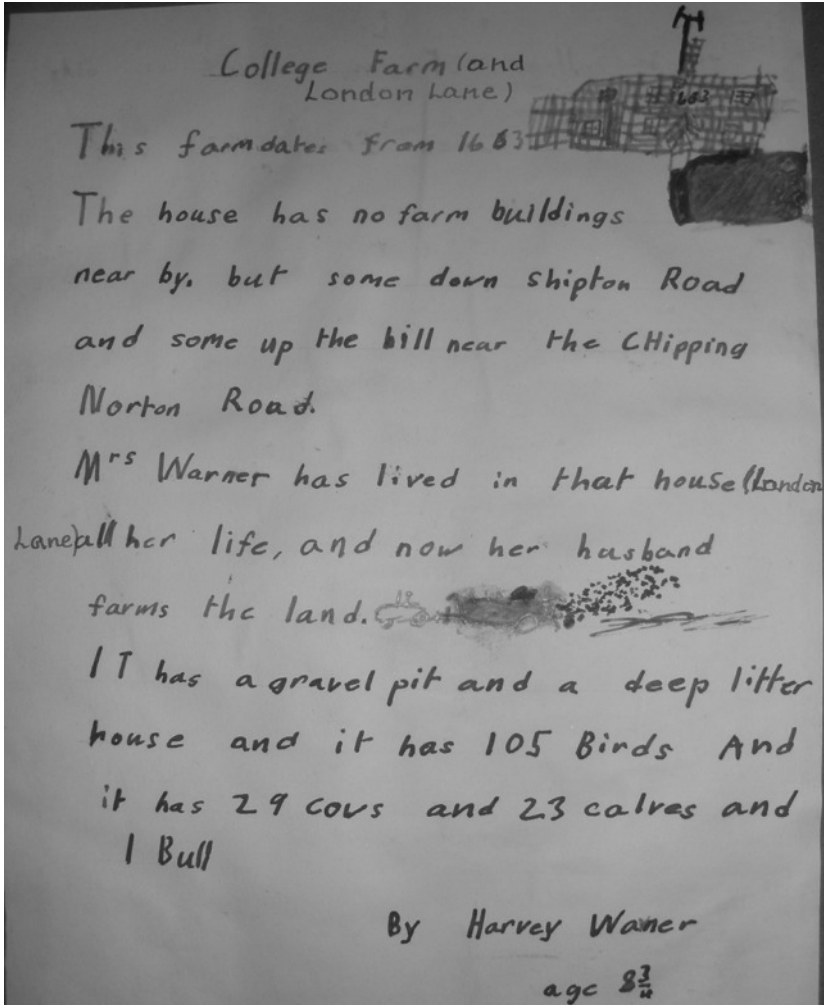 College Farm (and
London Lane)
This farm dates from 1683
1683
The house has no farm buildings
near by. but some down shipton Road
and some up the hill near the CHipping
Norton Road.
Mrs Warner has lived in that house (London
Lane) all her life, and now her husband
farms the land.
IT has a gravel pit and a deep litter
house and it has 105 Birds And
it has 29 cows and 23 calves and
1 Bull
By Harvey Waner
age 8 3/4